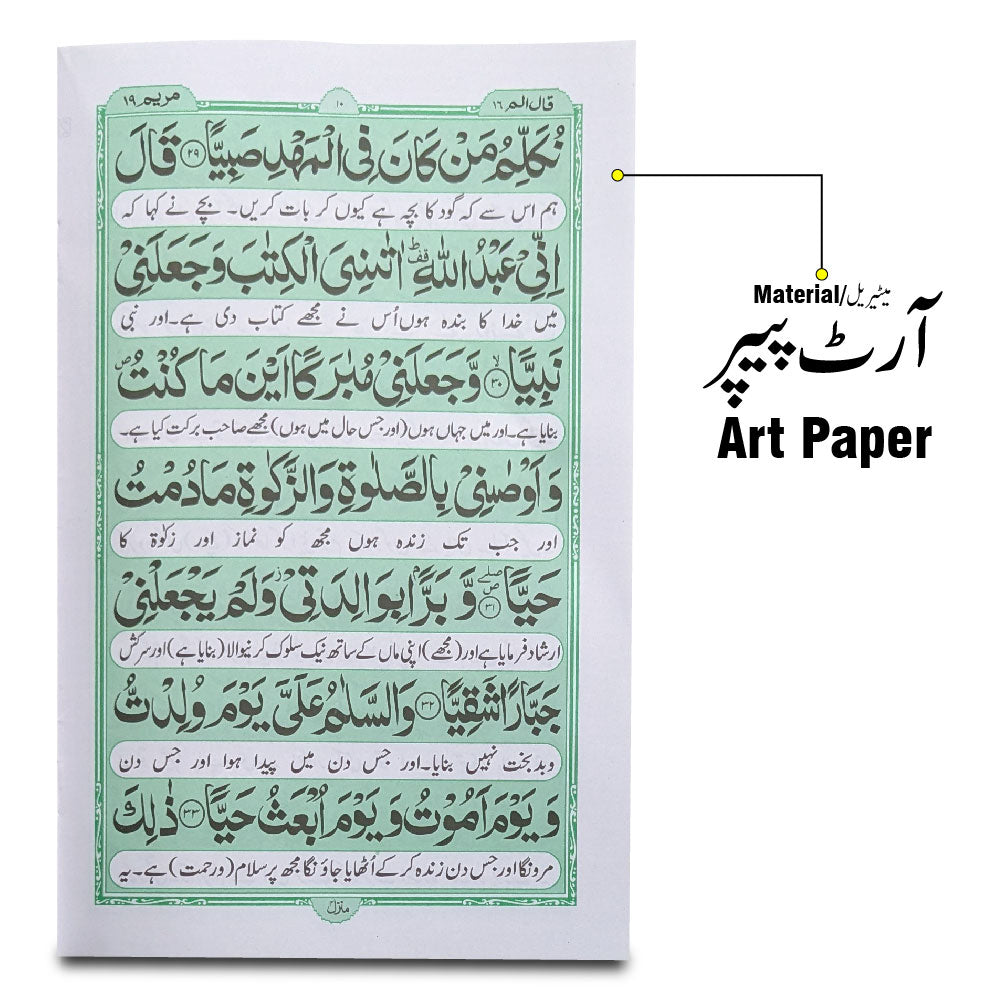 قال الم ۱۶
۱۰
مریم ۱۹
نُكَلِّمُ مَنْ كَانَ فِی الْمَهْدِ صَبِیًّا ۲۹ قَالَ
ہم اس سے کہ گود کا بچہ ہے کیوں کر بات کریں۔ بچے نے کہا کہ
اِنِّیْ عَبْدُ اللّٰهِ ؕ قف اٰتٰىنِیَ الْكِتٰبَ وَ جَعَلَنِیْ
میں خدا کا بندہ ہوں اُس نے مجھے کتاب دی ہے۔اور نبی
نَبِیًّا ۙ ۳۰ وَّ جَعَلَنِیْ مُبٰرَكًا اَیْنَ مَا كُنْتُ ۪
بنایا ہے۔اور میں جہاں ہوں (اور جس حال میں ہوں) مجھے صاحب برکت کیا ہے۔
وَ اَوْصٰنِیْ بِالصَّلٰوةِ وَ الزَّكٰوةِ مَا دُمْتُ
اور جب تک زندہ ہوں مجھ کو نماز اور زکوٰۃ کا
حَیًّا ۳۱ وَّ بَرًّۢا بِوَالِدَتِیْ ؗ وَ لَمْ یَجْعَلْنِیْ
ارشاد فرمایا ہے اور (مجھے) اپنی ماں کے ساتھ نیک سلوک کرنیوالا (بنایا ہے) اور سرکش
جَبَّارًا شَقِیًّا ۳۲ وَ السَّلٰمُ عَلَیَّ یَوْمَ وُلِدْتُّ
وبدبخت نہیں بنایا۔اور جس دن میں پیدا ہوا اور جس دن
وَ یَوْمَ اَمُوْتُ وَ یَوْمَ اُبْعَثُ حَیًّا ۳۳ ذٰلِكَ
مرونگا اور جس دن زندہ کر کے اُٹھایا جاؤنگا مجھ پر سلام (ورحمت) ہے۔یہ
منزل
Material/میٹیریل
آرٹ پیپر
Art Paper